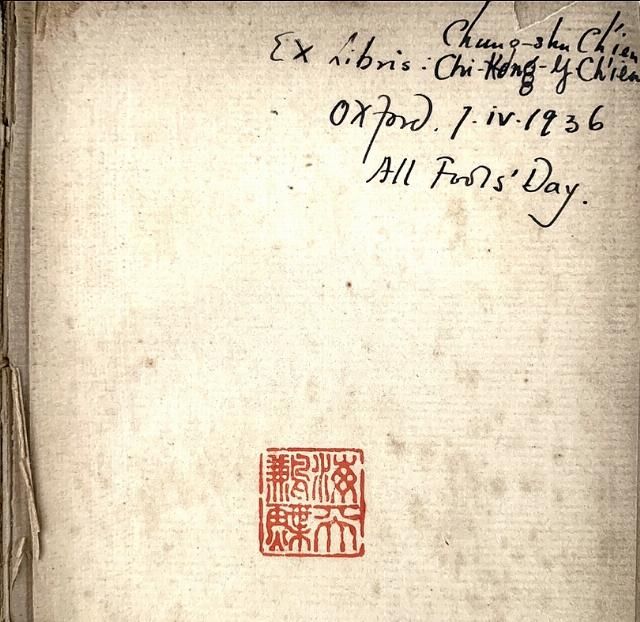 Chung-shu Ch'ien
Ex Libris: Chi-Kang-Y-Ch'ien
Oxford. 1.iv.1936
All Fools' Day.
海天
鶼鰈